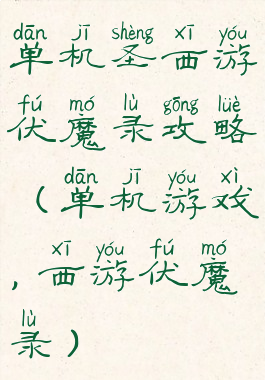 dān jī shèng xī yóu
单机圣西游
fú mó lù gōng lüè
伏魔录攻略
dān jī yóu xì
(单机游戏
xī yóu fú mó
,西游伏魔
lù
录)